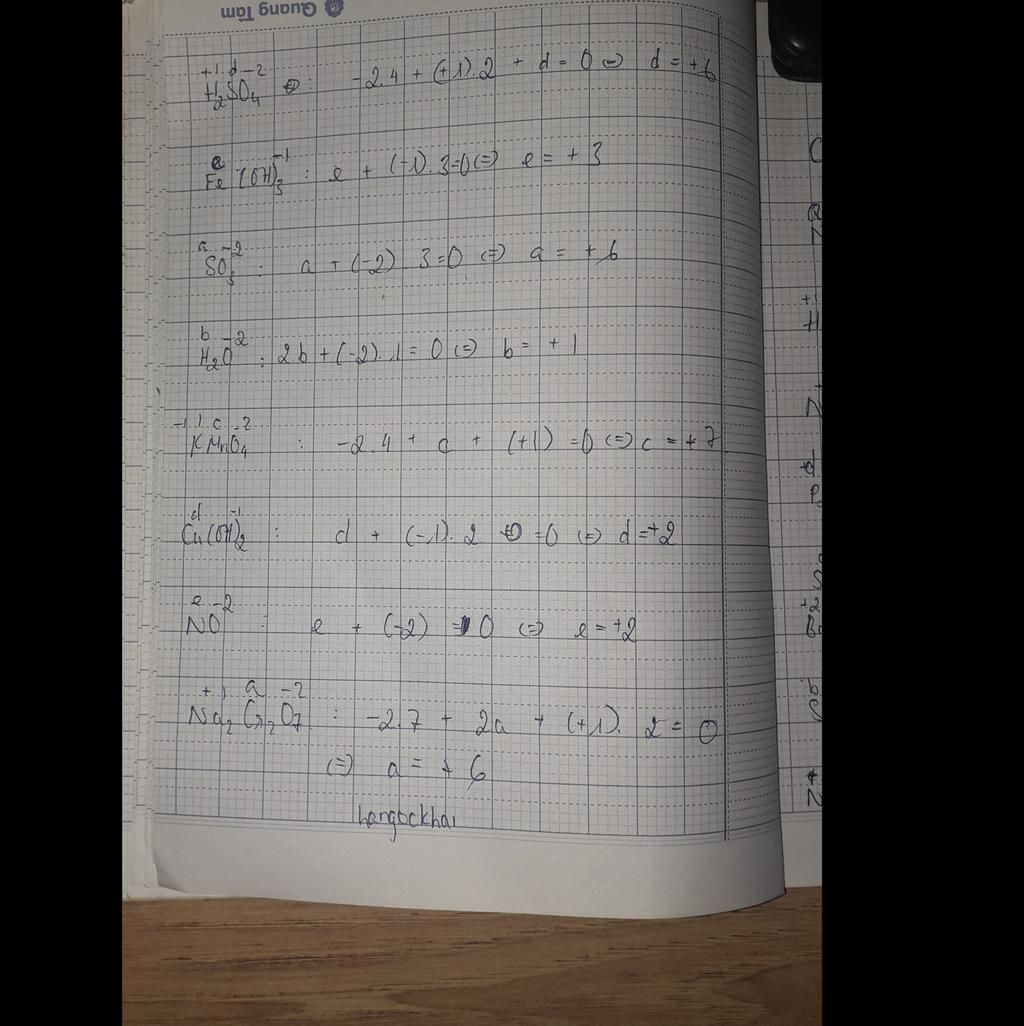 Quang Tâm
+1 d -2
H2SO4 : -2.4 + (+1).2 + d = 0 <=> d = +6
e -1
Fe(OH)3 : e + (-1).3=0 <=> e = +3
a -2
SO3 : a + (-2).3=0 <=> a = +6
b -2
H2O : 2.b + (-2).1 = 0 <=> b = +1
c -2
KMnO4 : -2.4 + c + (+1) =0 <=> c = +7
d -1
Cu(OH)2 : d + (-1).2 =0 <=> d =+2
e -2
NO : e + (-2) = 0 <=> e = +2
+1 a -2
Na2Cr2O7 : -2.7 + 2a + (+1).2 = 0
<=> a = +6
hangockhai